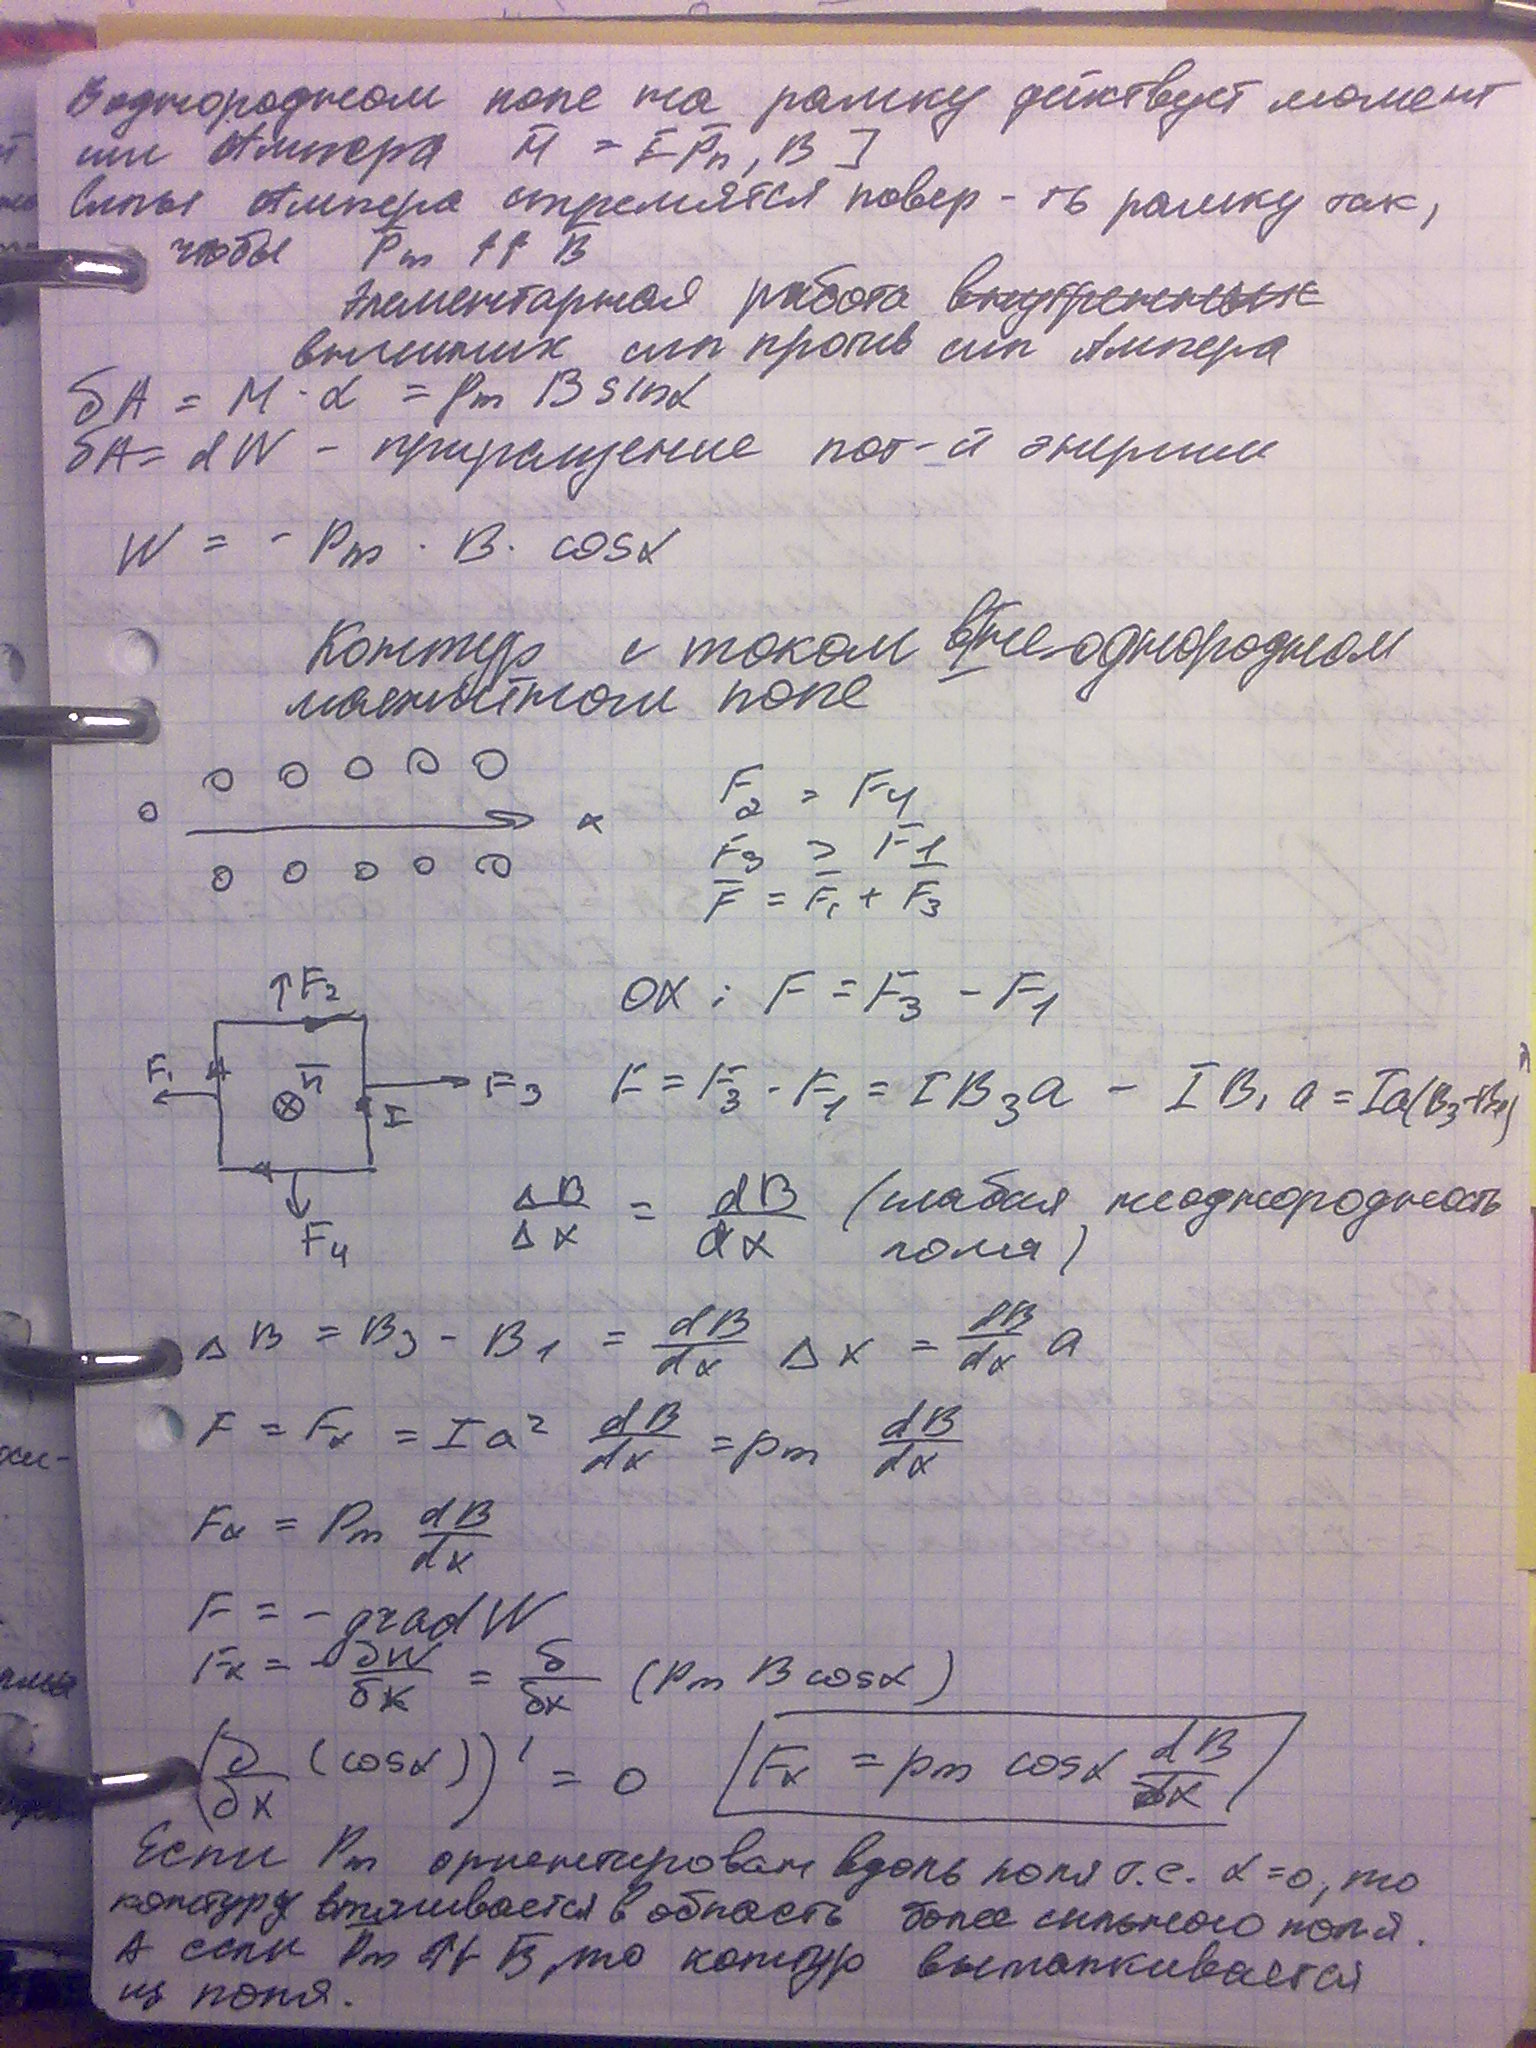 В однородном поле на рамку действует момент
сил Ампера M̄ = [P̄m, B̄]
Силы Ампера стремятся повер-ть рамку так,
чтобы P̄m ↑↑ B̄
Элементарная работа внутренних
внешних сил против сил Ампера
δA = M · α = pm B sinα
δA = dW - приращение пот-й энергии
W = - Pm · B · cosα
Контур с током в неоднородном
магнитном поле
x
F2 = F4
F3 > F1
F̄ = F̄1 + F̄3
F2
OX: F = F3 - F1
F1
n̄
F3
I
F = F3 - F1 = I B3 a - I B1 a = Ia(B3-B1)
F4
ΔB/Δx = dB/dx (слабая неоднородность
поля)
ΔB = B3 - B1 = dB/dx Δx = dB/dx a
F = Fx = Ia² dB/dx = pm dB/dx
Fx = Pm dB/dx
F = - grad W
Fx = - ∂W/δx = δ/δx (Pm B cosα)
(∂/∂x (cosα))' = 0
Fx = pm cosα dB/dx
Если Pm ориентирован вдоль поля т.е. α=0, то
контур втягивается в область более сильного поля.
А если P̄m ↑↓ B̄, то контур выталкивается
из поля.